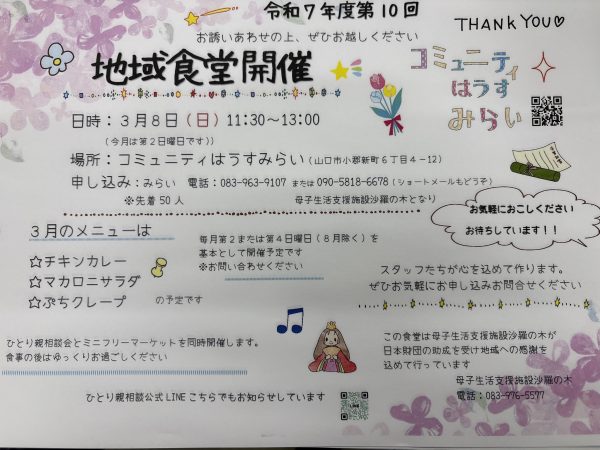 令和7年度第10回
お誘いあわせの上、ぜひお越しください
地域食堂開催
THANK YOU♡
コミュニティ
はうす
みらい
日時：3月8日（日）11:30～13:00
（今月は第2日曜日です））
場所：コミュニティはうすみらい（山口市小郡新町6丁目4-12）
申し込み：みらい　電話：083-963-9107 または 090-5818-6678（ショートメールもどうぞ）
※先着50人　母子生活支援施設沙羅の木となり
お気軽におこしください
お待ちしています！！
3月のメニューは
☆チキンカレー
☆マカロニサラダ
☆ぷちクレープ　の予定です
毎月第2または第4日曜日（8月除く）を
基本として開催予定です
※お問い合わせください
スタッフたちが心を込めて作ります。
ぜひお気軽にお申し込みお問合せください
ひとり親相談会とミニフリーマーケットを同時開催します。
食事の後はゆっくりお過ごしください
この食堂は母子生活支援施設沙羅の木が
日本財団の助成を受け地域への感謝を
込めて行っています
母子生活支援施設沙羅の木
電話：083-976-5577
ひとり親相談公式LINEこちらでもお知らせしています